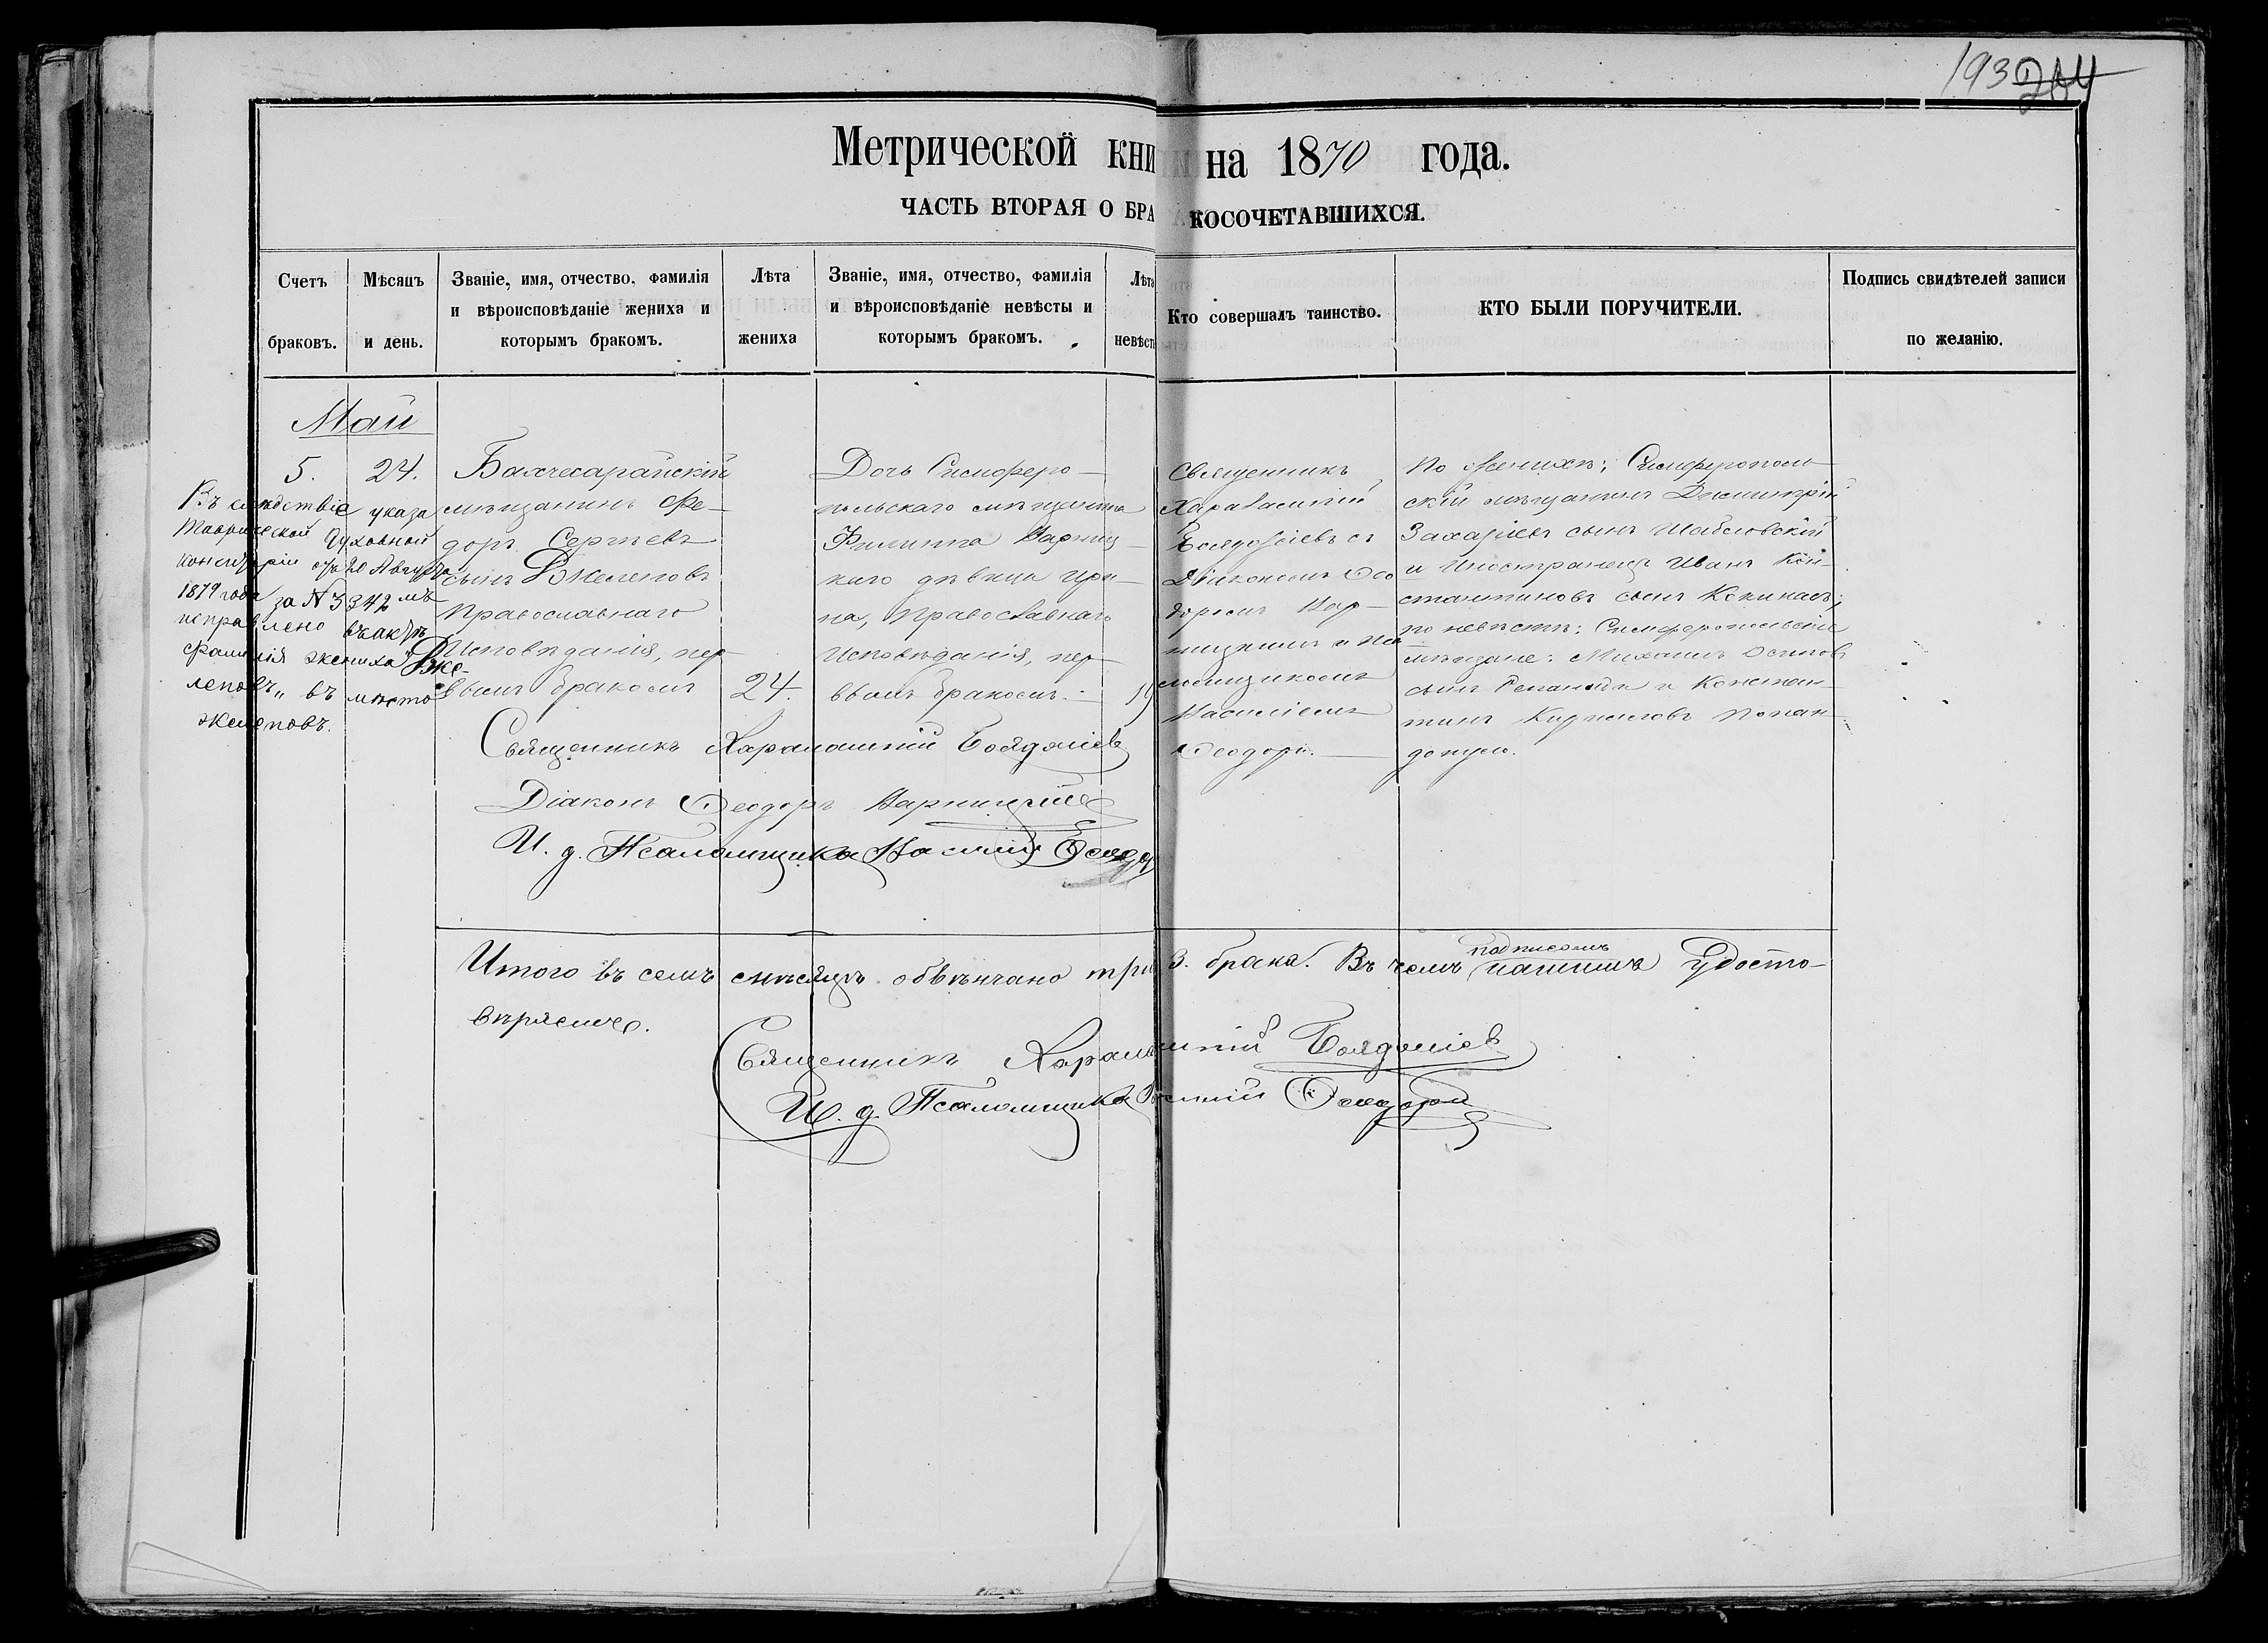 193
Метрической кни на 1870 года.
ЧАСТЬ ВТОРАЯ О БРАКОСОЧЕТАВШИХСЯ.
Счетъ браковъ.
Мѣсяцъ и день.
Званіе, имя, отчество, фамилія и вѣроисповѣданіе жениха и которымъ бракомъ.
Лѣта жениха
Званіе, имя, отчество, фамилія и вѣроисповѣданіе невѣсты и которымъ бракомъ.
Лѣта невѣст
Кто совершалъ таинство.
КТО БЫЛИ ПОРУЧИТЕЛИ.
Подпись свидѣтелей записи по желанію.
Май
5. 24.
Въ слѣдствіе указа
Таврической Духовной
Консисторіи отъ 20 Августа
1879 года за № 3342 мъ
исправлено въ актѣ
фамилія жениха „Дже-
леповъ„ въ мѣсто
Желеповъ.
Бахчесарайскій
мѣщанинъ Фе-
доръ Сергѣевъ
сынъ Джелеповъ
Православнаго
Исповѣданія, пер-
вымъ бракомъ
24.
Дочь Симферо-
польскаго мѣщанина
Филиппа Варниц-
каго дѣвица Ири-
на, Православнаго
Исповѣданія, пер-
вымъ бракомъ.
19
Священникъ
Харалампій
Бояджіевъ съ
Діакономъ Ѳео
доромъ Вар-
ницкимъ и Пса
ломщикомъ
Василіемъ
Ѳеодори.
По женихѣ: Симферополь-
скій мѣщанинъ Димитрій
Захаріевъ сынъ Шабловскій
и Иностранецъ Иванъ Кон-
стантиновъ сынъ Кокинасъ;
по невѣстѣ: Симферопольскіе
мѣщане: Михаилъ Осиповъ
сынъ и Констан-
тинъ Кирилловъ Попан-
допуло.
Священникъ Харалампій Бояджіевъ
Діаконъ Ѳеодоръ Варницкій
И. д. Псаломщика Василій Ѳеодо
Итого въ семъ мѣсяцѣ обвѣнчано три 3. брака. Въ чемъ подписомъ нашимъ Удосто-
вѣряемъ.
Священникъ Харалампій Бояджіевъ
И. д. Псаломщика Василій Ѳеодори